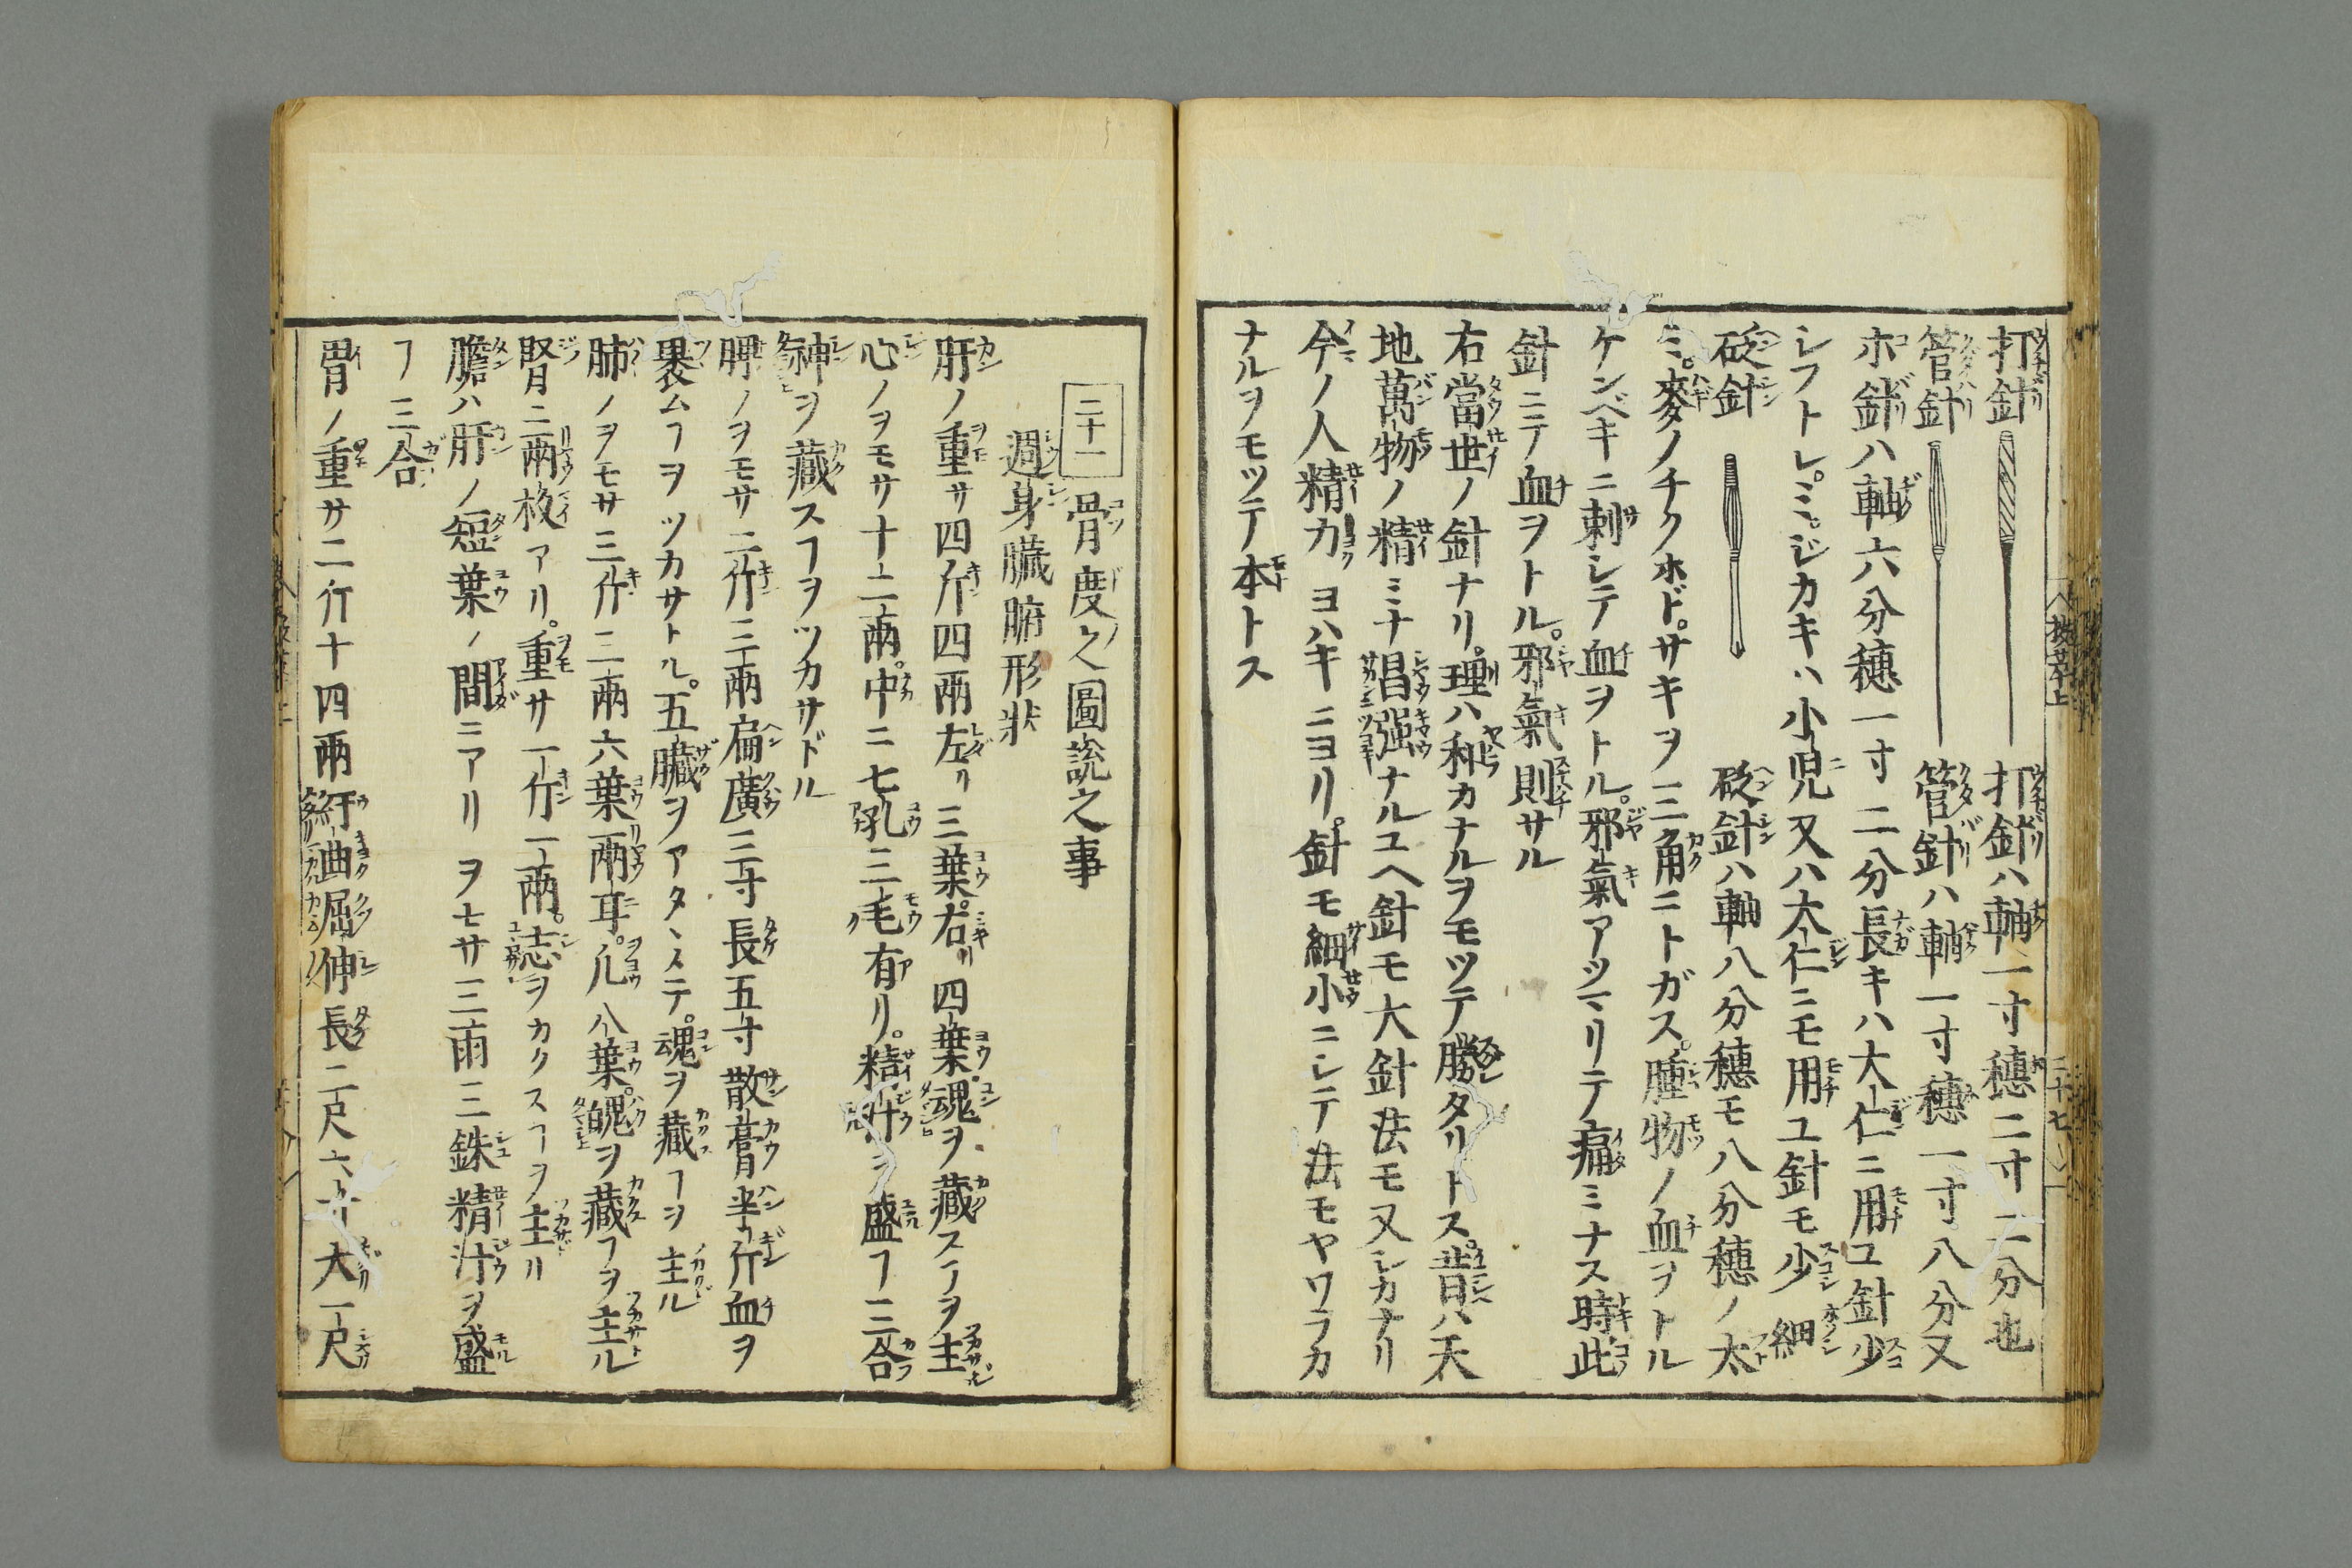 打針 打針ハ軸一寸穗二寸二分也
管針 管針ハ軸一寸穗一寸八分又
ホ針ハ軸六分穗一寸二分長キハ大仁ニ用ユ針少
シフトレ。ミジカキハ小児又ハ大仁ニモ用ユ針モ少細
砭針 砭針ハ軸八分穗モ八分穗ノ太
ミ。麥ノチクホド。サキヲ三角ニトガス。腫物ノ血ヲトル
ケンベキニ刺シテ血ヲトル。邪氣アツマリテ痛ミナス時此
針ニテ血ヲトル。邪氣則サル
右當世ノ針ナリ。理ハ和カナルヲモツテ勝タリトス。昔ハ天
地萬物ノ精ミナ昌强ナルユヘ針モ大針法モ又シカナリ
今ノ人精力ヨハキニヨリ。針モ細小ニシテ法モヤワラカ
ナルヲモツテ本トス
二十一 骨度之圖說之事
週身臓腑形狀
肝ノ重サ四斤四兩左リ三葉右リ四葉魂ヲ藏スヿヲ主
心ノヲモサ十二兩。中ニ七孔三毛有リ。精汁ヲ盛ヿ三合
神ヲ藏スヿヲツカサドル
脾ノヲモサ二斤三兩扁廣三寸長五寸散膏半斤血ヲ
裹ムヿヲツカサトル。五臓ヲアタヽメテ。魂ヲ藏ヿヲ主ル
肺ノヲモサ三斤三兩六葉兩耳。凡八葉。魄ヲ藏ヿヲ主ル
腎ニ兩枚アリ。重サ一斤一兩。志ヲカクスヿヲ主リ
膽ハ肝ノ短葉ノ間ニアリヲモサ三兩三銖精汁ヲ盛
ヿ三合
胃ノ重サ二斤十四兩紆曲屈伸長二尺六寸大一尺